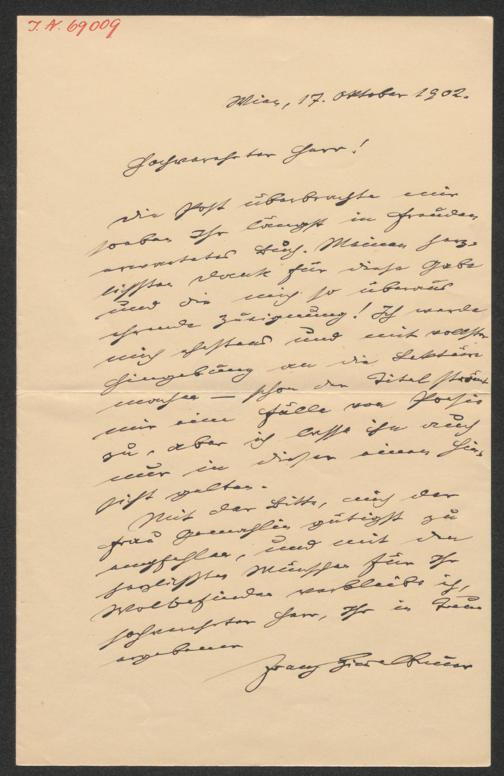 I. N. 69009
Wien, 17. Oktober 1902.
Hochverehrter Herr!
Die Post überbrachte mir
soeben Ihr längst in Freuden
erwartetes Buch. Meinen herz-
lichsten Dank für diese Gabe
und die mich so überaus
ehrende Zueignung! Ich werde
mich ehestens und mit vollster
Hingebung an die Lektüre
machen — schon der Titel strömt
mir eine Fülle von Poesie
zu, aber ich lasse ihn auch
nur in dieser einen Hin-
sicht gelten.
Mit der Bitte, mich der
Frau Gemahlin gütigst zu
empfehlen, und mit den
herzlichsten Wünschen für Ihr
Wolbefinden verbleibe ich,
hochverehrter Herr, Ihr in Treue
ergebener
Franz